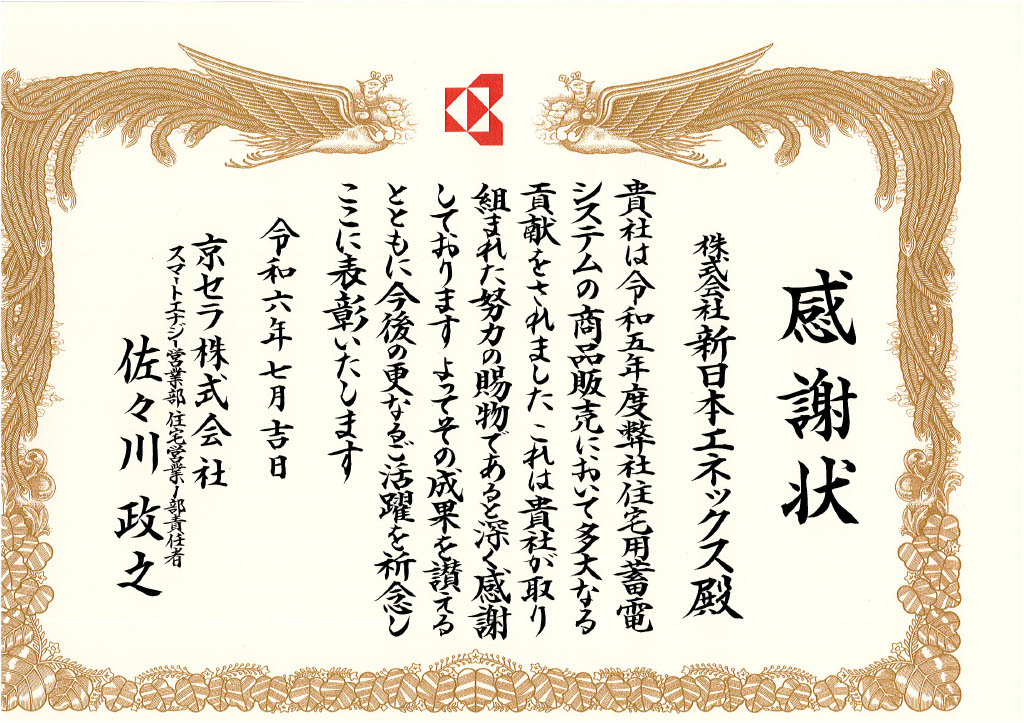 感謝状
株式会社新日本エネックス殿
貴社は令和五年度弊社住宅用蓄電
システムの商品販売において多大なる
貢献をされました これは貴社が取り
組まれた努力の賜物であると深く感謝
しております よってその成果を讃える
とともに今後の更なるご活躍を祈念し
ここに表彰いたします
令和六年七月吉日
京セラ株式会社
スマートエナジー営業部 住宅営業1部責任者
佐々川政之